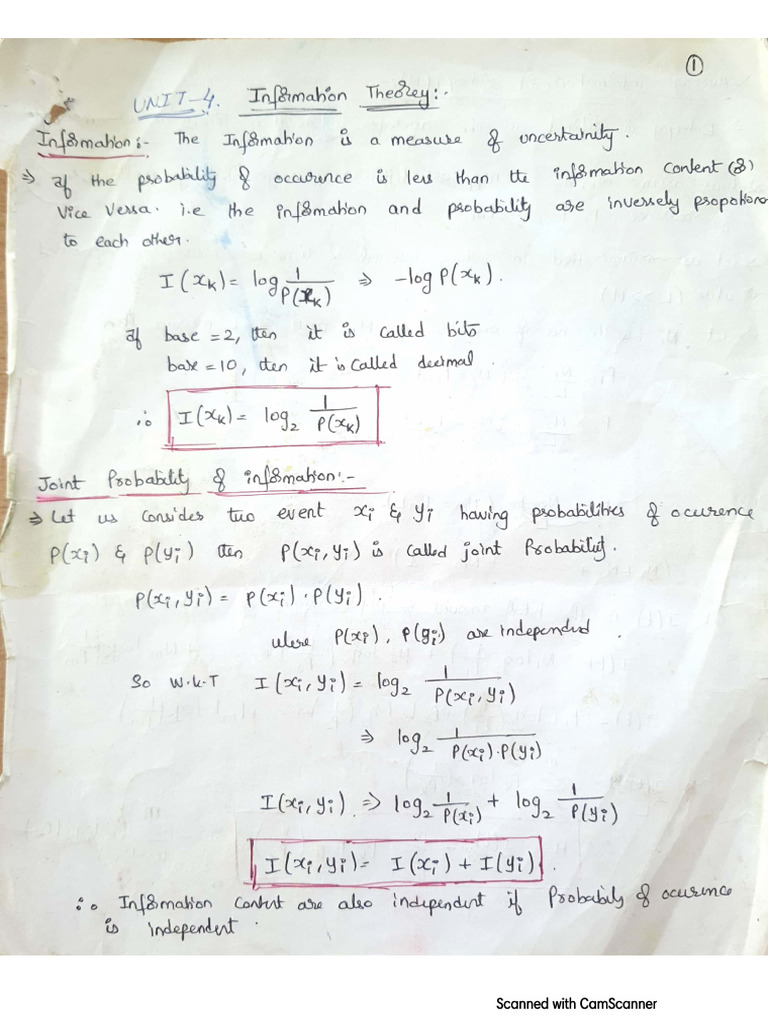 ①
UNIT-4. Information Theorey:-
Information:- The Information is a measure of uncertainity.
⇒ If the probability of occurence is less than the information content (&)
Vice Versa. i.e the information and probability are inversely propotion
to each other.
I(xₖ) = log 1/P(xₖ) ⇒ -log P(xₖ).
If base = 2, then it is called bits
base = 10, then it is called decimal.
∴ I(xₖ) = log₂ 1/P(xₖ)
Joint Probability of information:-
⇒ Let us consider two event xᵢ & yᵢ having probabilities of ocurence
P(xᵢ) & P(yᵢ) then P(xᵢ, yᵢ) is called joint Probability.
P(xᵢ, yᵢ) = P(xᵢ) · P(yᵢ).
where P(xᵢ), P(yᵢ) are independed.
So W.k.T I(xᵢ, yᵢ) = log₂ 1/P(xᵢ, yᵢ)
⇒ log₂ 1/P(xᵢ)·P(yᵢ)
I(xᵢ, yᵢ) ⇒ log₂ 1/P(xᵢ) + log₂ 1/P(yᵢ)
I(xᵢ, yᵢ) = I(xᵢ) + I(yᵢ).
∴ Information content are also independent if Probabily of ocurince
is independent.
Scanned with CamScanner